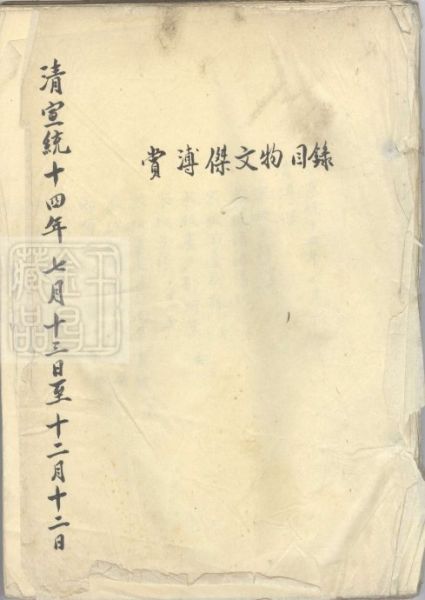 賞溥傑文物目錄
清宣統十四年七月十三日至十二月十二日